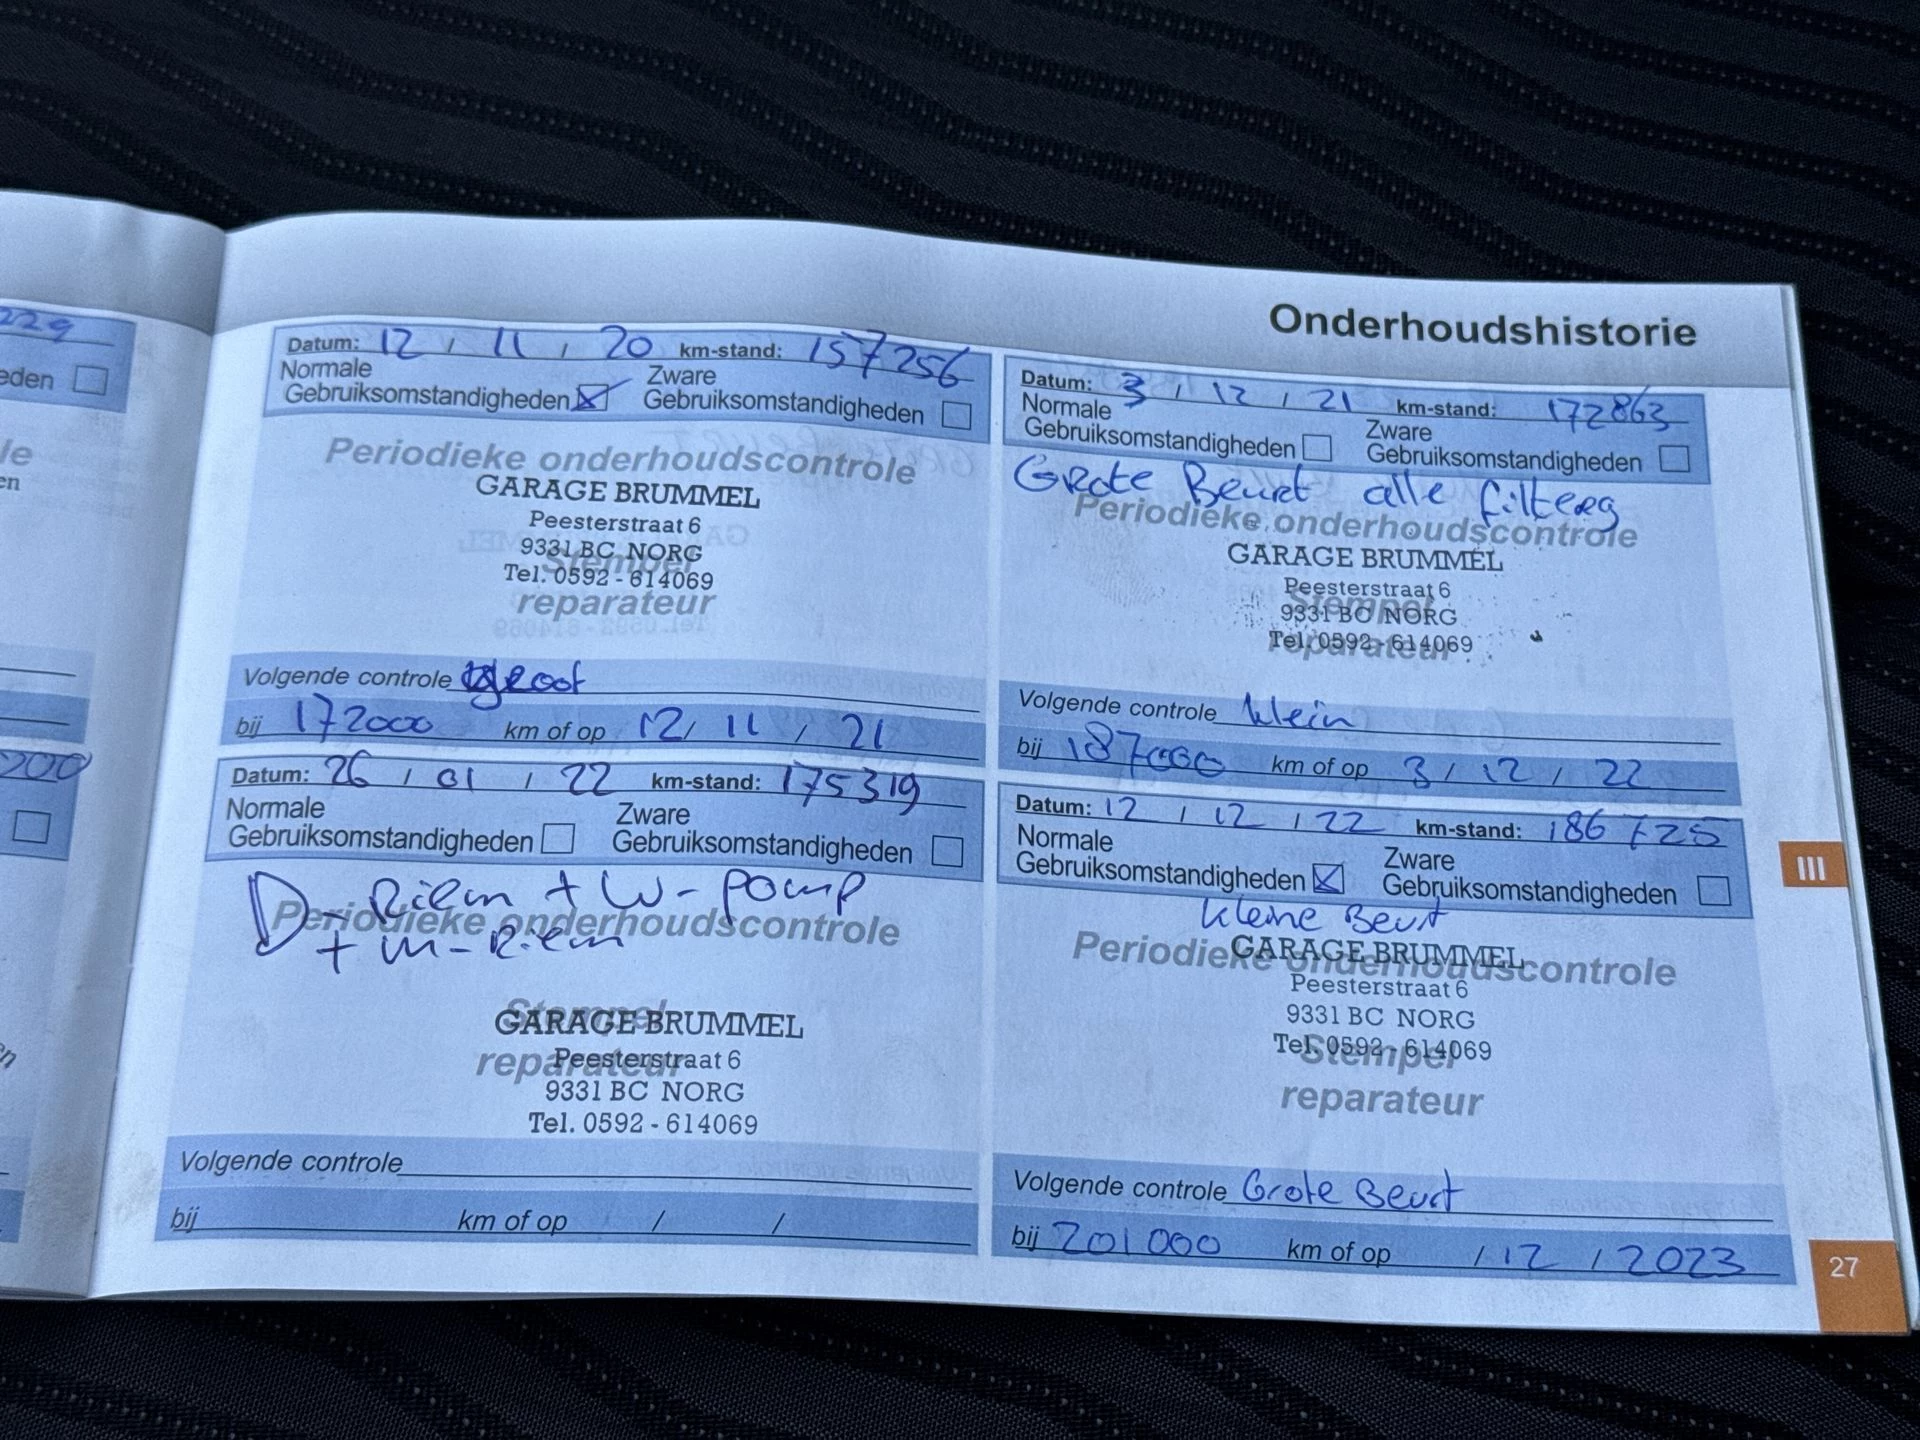 229
eden
le
en
200
Onderhoudshistorie
Datum: 12 / 11 / 20 km-stand: 157256
Normale Gebruiksomstandigheden
Zware Gebruiksomstandigheden
Periodieke onderhoudscontrole
GARAGE BRUMMEL
Peesterstraat 6
9331 BC NORG
Stempel
Tel. 0592 - 614069
reparateur
Volgende controle groot
bij 172000 km of op 12 / 11 / 21
Datum: 3 / 12 / 21 km-stand: 172863
Normale Gebruiksomstandigheden
Zware Gebruiksomstandigheden
Grote Beurt alle filters
Periodieke onderhoudscontrole
GARAGE BRUMMEL
Peesterstraat 6
Stempel
9331 BC NORG
Tel. 0592 - 614069
reparateur
Volgende controle klein
bij 187000 km of op 3 / 12 / 22
Datum: 26 / 01 / 22 km-stand: 175319
Normale Gebruiksomstandigheden
Zware Gebruiksomstandigheden
D-Riem + W-pomp
Periodieke onderhoudscontrole
+ M-Riem
Stempel
GARAGE BRUMMEL
reparateur
Peesterstraat 6
9331 BC NORG
Tel. 0592 - 614069
Volgende controle
bij km of op / /
Datum: 12 / 12 / 22 km-stand: 186725
Normale Gebruiksomstandigheden
Zware Gebruiksomstandigheden
kleine Beurt
GARAGE BRUMMEL
Periodieke onderhoudscontrole
Peesterstraat 6
9331 BC NORG
Tel. 0592 - 614069
Stempel
reparateur
Volgende controle Grote Beurt
bij 201000 km of op / 12 / 2023
III
27